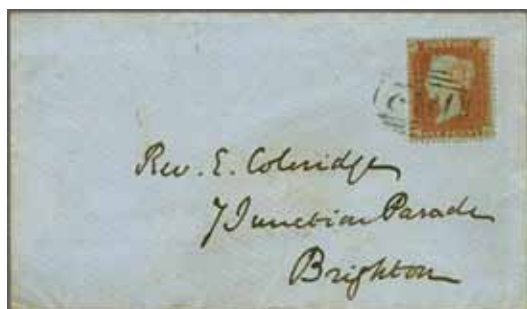 Rev. E. Coleridge
7 Junction Parade
Brighton